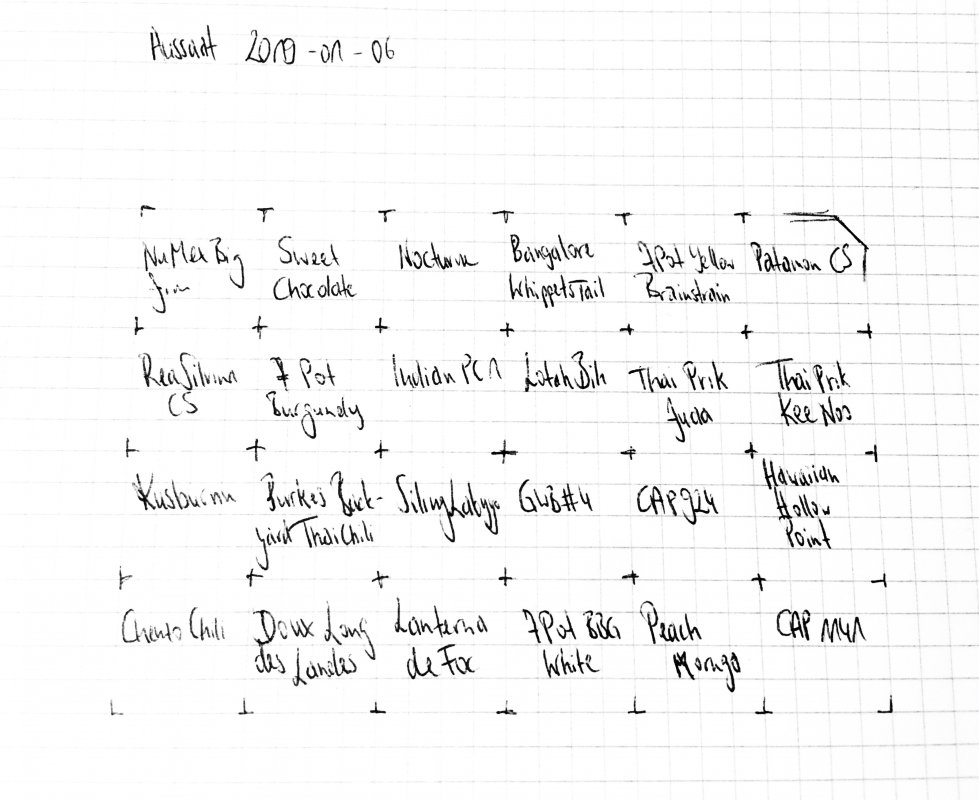 Aussaat 2019-01-06
NuMex Big Sweet Nocturne Bangalore 7Pot Yellow Patanon CS
Jim Chocolate Whippets Tail Brainstrain
Rea Silvina 7 Pot Indian PC1 Lotah Bih Thai Prik Thai Prik
CS Burgundy Jucia Kee Noo
Kusburnu Burkes Back- Siling Labuyo GWB#4 CAP 924 Hawaiian
yard Thai Chili Hollow
Point
Chento Chili Doux Long Lanterna 7Pot BBG Peach CAP 1141
des Landes de Foc White Morugo